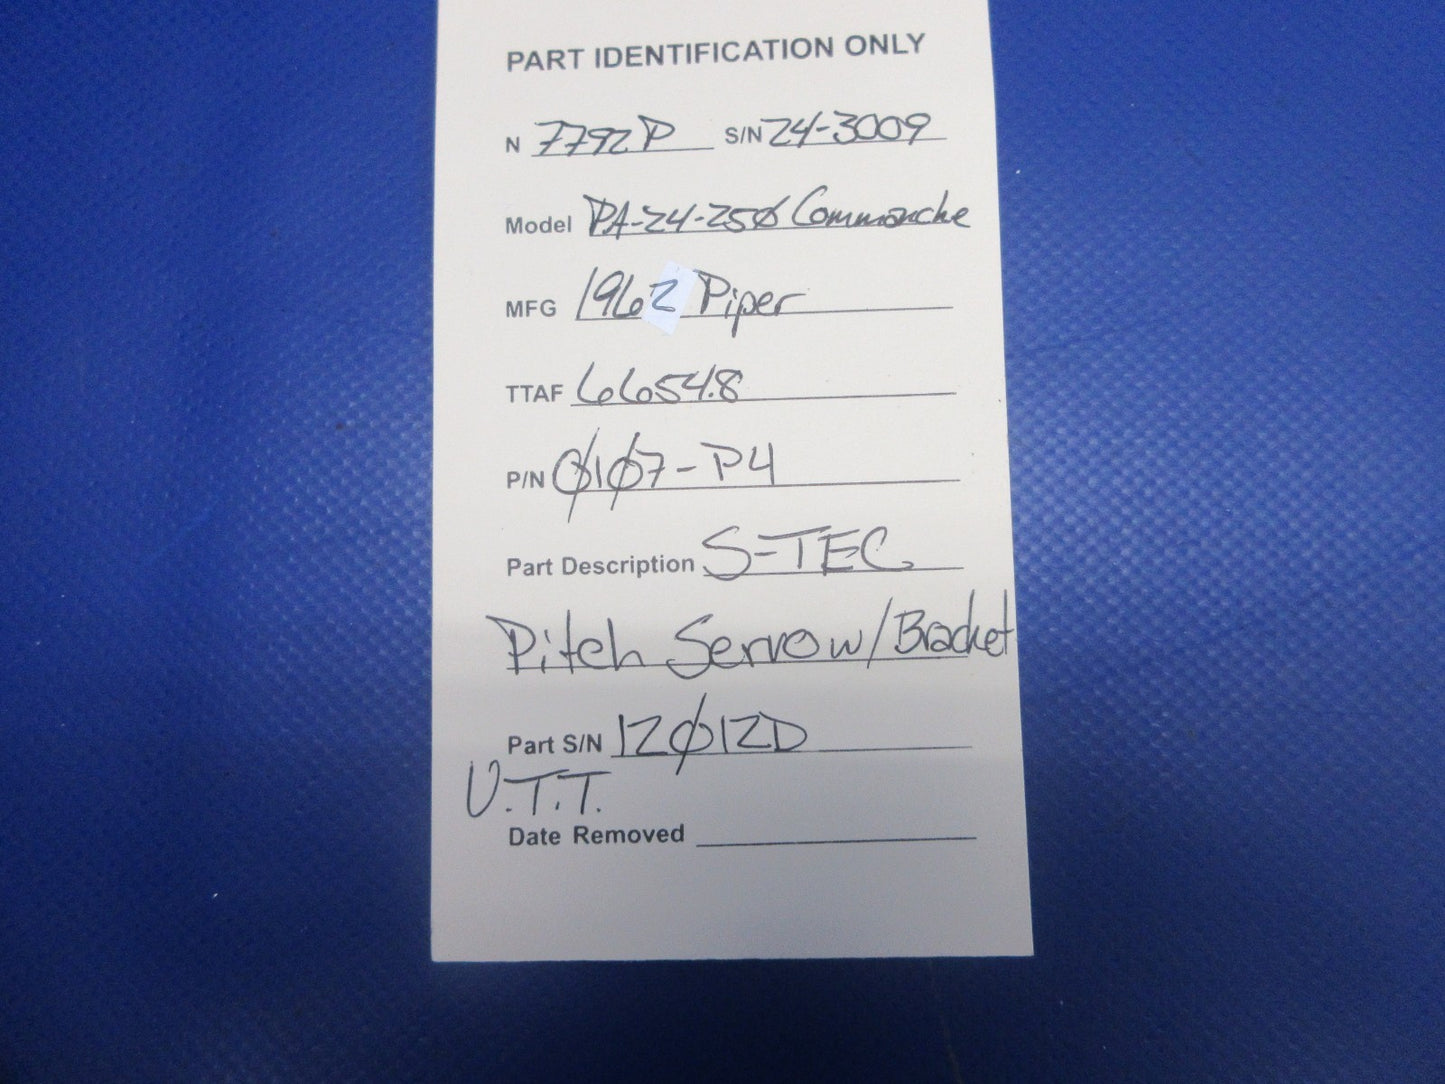 PART IDENTIFICATION ONLY
N 7792P S/N 24-3009
Model PA-24-250 Commanche
MFG 1962 Piper
TTAF 6654.8
P/N 0107-P4
Part Description S-TEC
Pitch Servo w/Bracket
Part S/N 12012D
U.T.T.
Date Removed